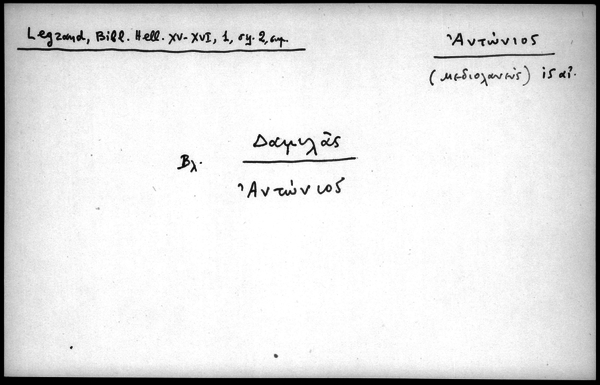 Legrand, Bibl. Hell. XV-XVI, 1, σχ. 2, σημ.
Ἀντώνιος
(μεδιολανεύς) ιε αἰ.
Βλ. Δαμιλᾶς
Ἀντώνιος